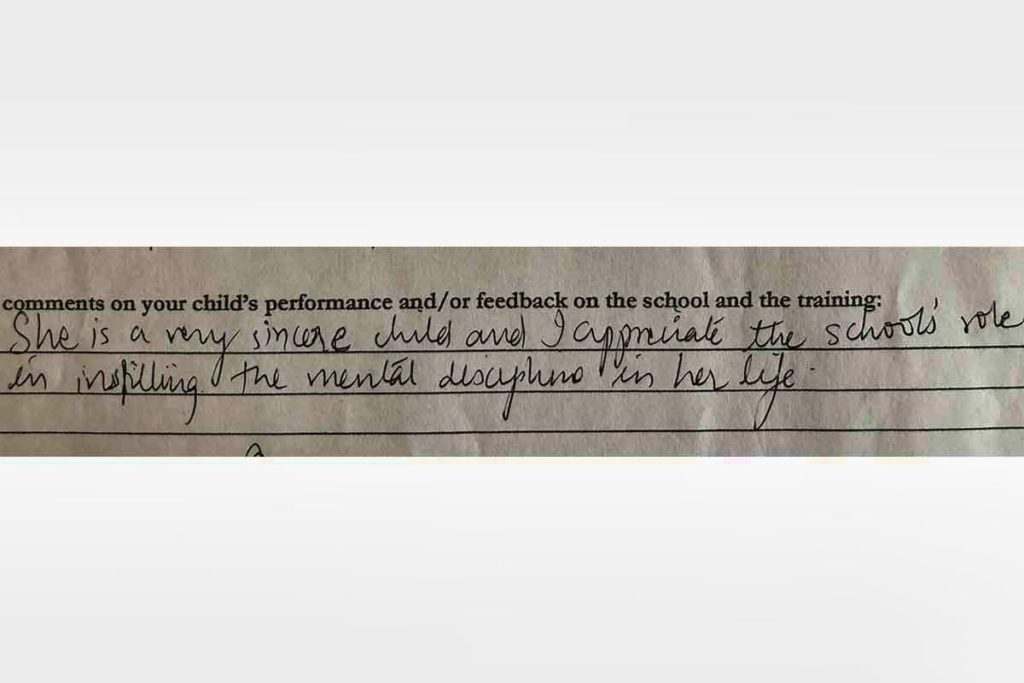 comments on your child's performance and/or feedback on the school and the training:
She is a very sincere child and I appreciate the schools' role
in instilling the mental discipline in her life.